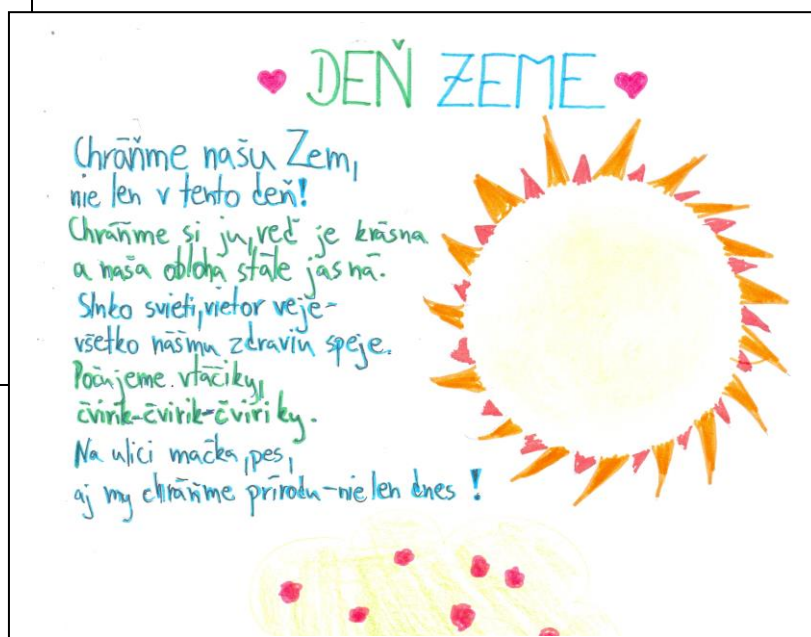 DEŇ ZEME
Chráňme našu Zem,
nie len v tento deň!
Chráňme si ju, veď je krásna
a naša obloha stále jasná.
Slnko svieti, vietor veje-
všetko nášmu zdraviu speje.
Počujeme vtáčiky,
čvirik-čvirik-čviriky.
Na ulici mačka, pes,
aj my chráňme prírodu-nie len dnes!